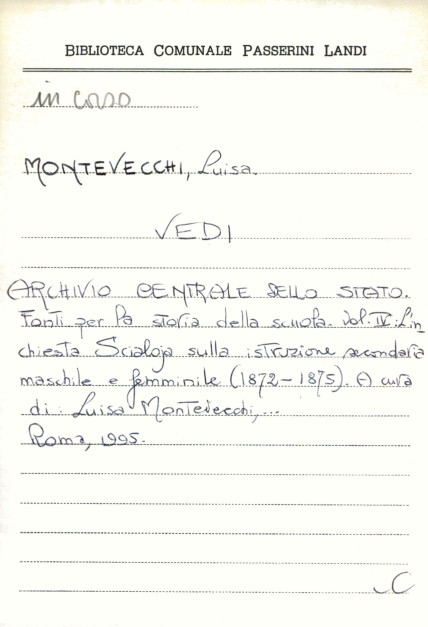 BIBLIOTECA COMUNALE PASSERINI LANDI
in corso
MONTEVECCHI, Luisa.
VEDI
ARCHIVIO CENTRALE DELLO STATO.
Fonti per la storia della scuola. Vol. IV: L'in
chiesta Scialoja sulla istruzione secondaria
maschile e femminile (1872-1875). A cura
di: Luisa Montevecchi,...
Roma, 1995.
C